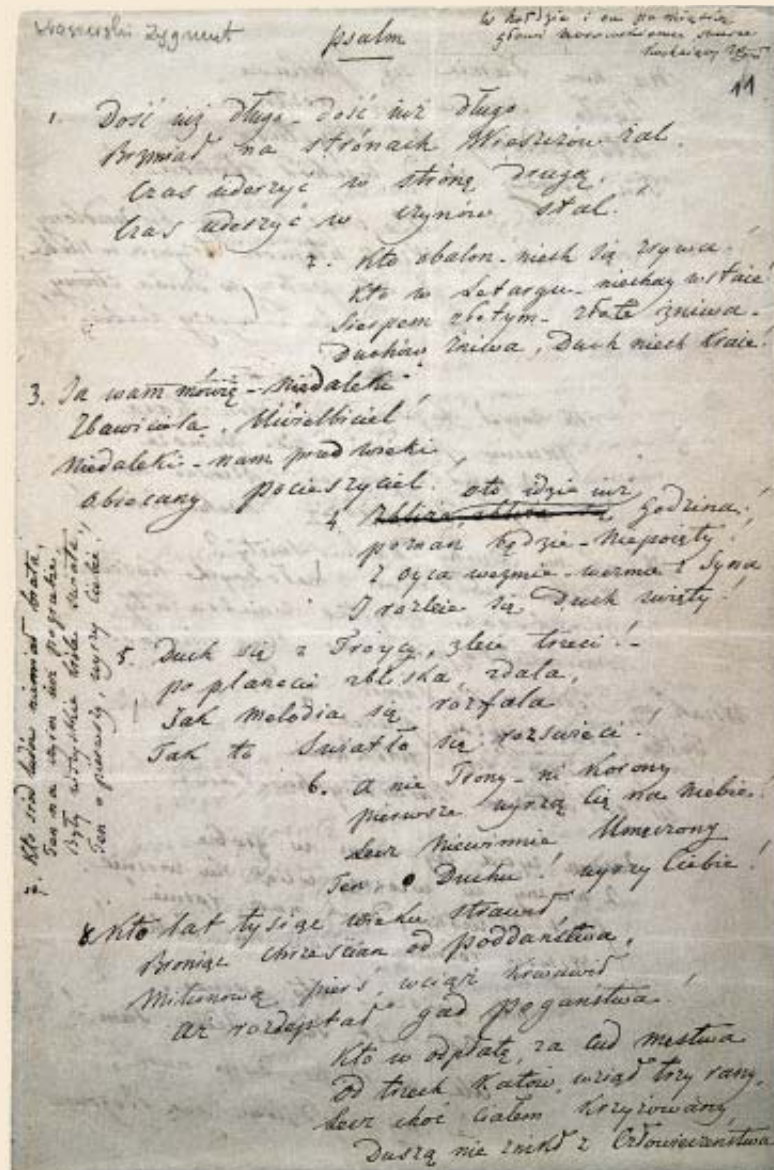 psalm
w hołdzie i na pamiątkę
11
1. Dość już długo – dość już długo
Brzmiał na strónach Wieszczów żal.
Czas uderzyć w strónę drugą,
Czas uderzyć w czynów stal!
2. Kto obalon – niech się zrywa!
Kto w Letargu – niechaj wstaie!
Sierpem złotym – złote żniwa –
Duchowe żniwa, Duch niech kraie!
3. Ja wam mówię – niedaleki
Zbawiciela, Uwielbiciel
Niedaleki – nam przed wieki,
Obiecany pocieszyciel!
oto idzie iuż
4. godzina!
poznan będzie – Niepoięty!
Z oyca weźmie – weźmie z Syna
I rozleie się Duch święty!
5. Duch się z Tróycy, zleie trzeci! –
po planecie zbliska, zdala,
Jak melodia się rozfala
Jak to Światło się rozświeci!
6. A nie Trony – ni Korony
pierwsze uyrzą Cię na Niebie!
Lecz Niewinnie, Umęczony
Ten, o Duchu! uyrzy Ciebie!
Kto śród ludzi niemiał brata,
Ten na czym iuż pogrzebie,
Były wszystkie króle świata,
Ten o pierwszy, uyrzy Ciebie!
8. Kto lat tysiąc wieku strawił,
Broniąc chrześcian od poddaństwa,
Milionową pierś, wciąż krwawił
Aż rozdeptał gad pogaństwa!
Kto w odpłatę, za cud męstwa
Od trzech Katów, wziął trzy rany,
Lecz choć ciałem krzyżowany,
Duszą nie znikł z Człowieczeństwa